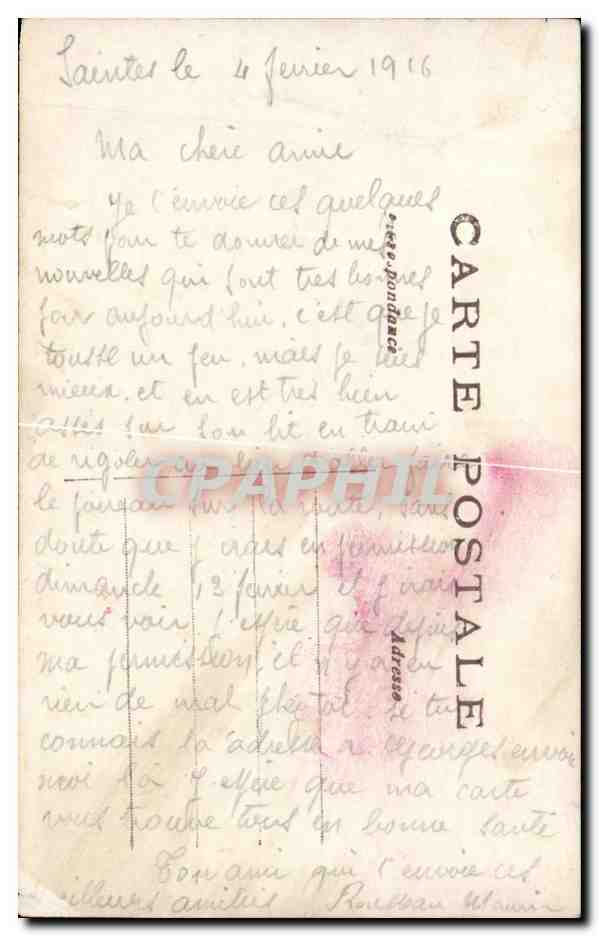 Saintes le 4 fevrier 1916
Ma chere amie
Je t'envoie ces quelques
mots pour te donner de mes
nouvelles qui sont tres bonnes
pour aujourd'hui. c'est que je
tousse un peu, mais je suis
mieux, et on est tres bien
assis sur son lit en train
de rigoler au lieu d'aller faire
le sur la route, sans
doute que j irais en permission
dimanche 13 fevrier et j irais
vous voir j espère que depuis
ma permission il n y a eu
rien de mal si tu
connais la adresse a Georges envoi
moi la J espère que ma carte
vous trouve tous en bonne santé
Ton ami qui t'envoie ces
meilleurs amities
CARTE POSTALE
Correspondance
Adresse
CPAPHIL